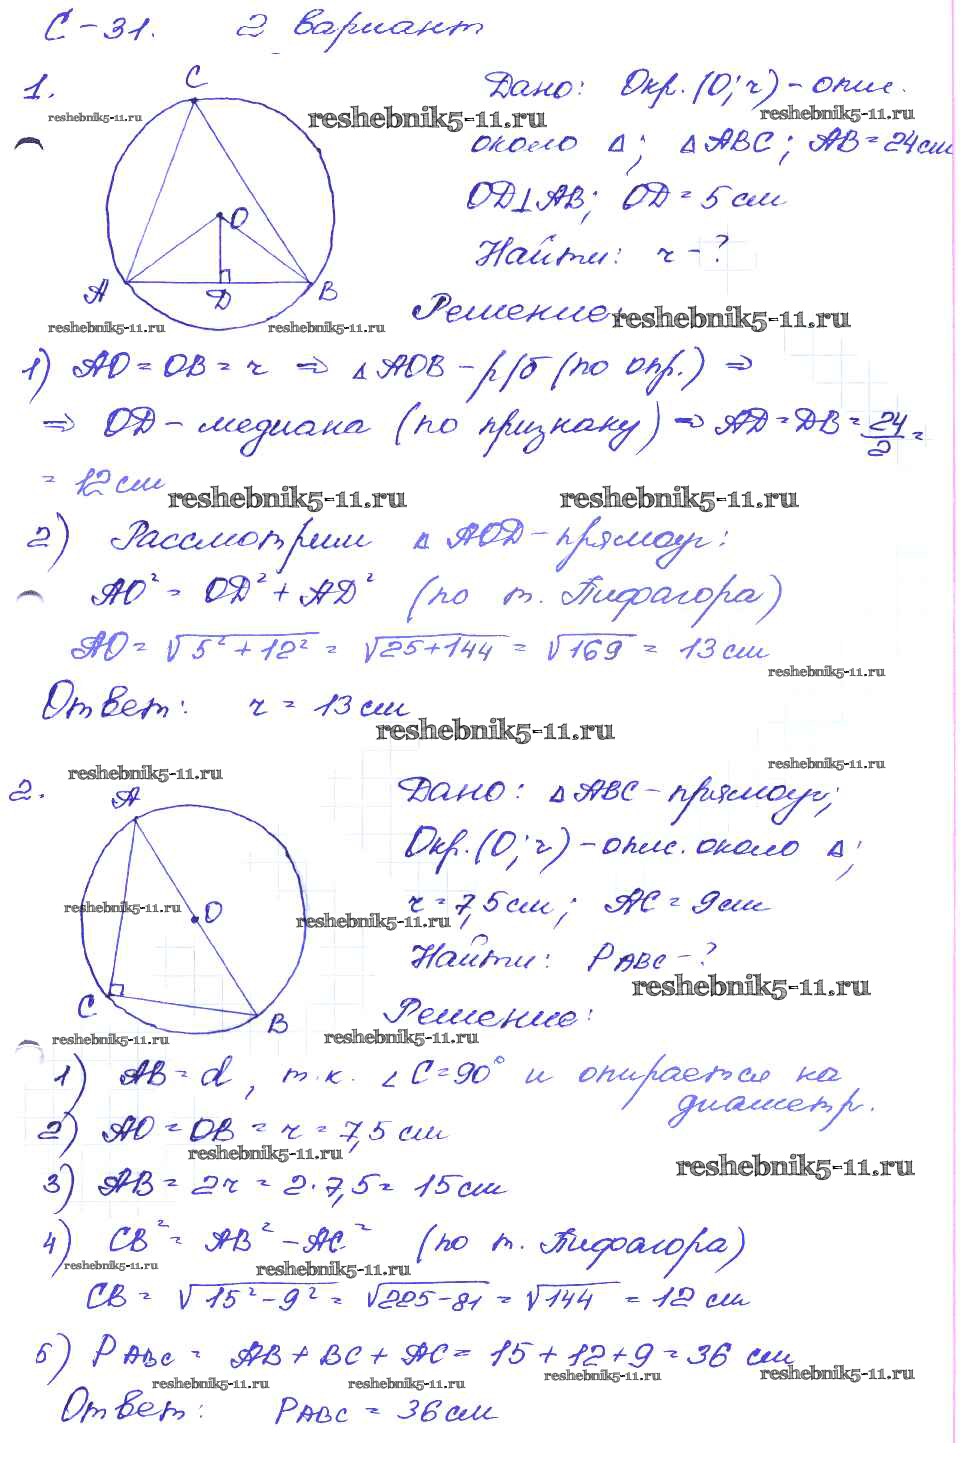 С-31. 2 вариант
1.
C
O
A
D
B
Дано: Окр.(O; r) - опис.
около Δ; ΔABC; AB = 24 см
OD⊥AB; OD = 5 см
Найти: r - ?
Решение:
1) AO = OB = r ⇒ ΔAOB - р/б (по опр.) ⇒
⇒ OD - медиана (по признаку) ⇒ AD = DB = 24/2 =
= 12 см
2) Рассмотрим ΔAOD - прямоуг:
AO² = OD² + AD² (по т. Пифагора)
AO = √5² + 12² = √25+144 = √169 = 13 см
Ответ: r = 13 см
2.
A
O
C
B
Дано: ΔABC - прямоуг;
Окр.(O; r) - опис. около Δ;
r = 7,5 см; AC = 9 см
Найти: P ABC - ?
Решение:
1) AB = d, т.к. ∠C = 90° и опирается на
диаметр.
2) AO = OB = r = 7,5 см
3) AB = 2r = 2·7,5 = 15 см
4) CB² = AB² - AC² (по т. Пифагора)
CB = √15² - 9² = √225 - 81 = √144 = 12 см
5) P ABC = AB + BC + AC = 15 + 12 + 9 = 36 см
Ответ: P ABC = 36 см
reshebnik5-11.ru